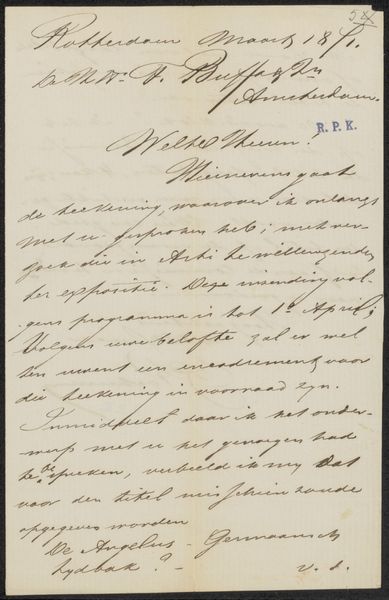 54
Rotterdam Maart 18/1.
De HH Wn F. Buffa & Zn
Amsterdam.
R. P. K.
Welhed Heeren!
Hiernevens gaat
de teekening, waarover ik onlangs
met u gesproken heb; met ver-
zoek die in Arti te willen zenden
ter expositie. Deze inzending vol-
gens programma is tot 1e April;
Volgens uwe belofte zal er wel
ten uwent een encadrement voor
die teekening in voorraad zyn.
Inmiddels daar ik het onder-
werp met u het genoegen had
te bespreken, verbeeld ik my dat
voor den titel misschien zoude
opgegeven worden
De Angelus - Germaansch
tydvak? -
v. s.